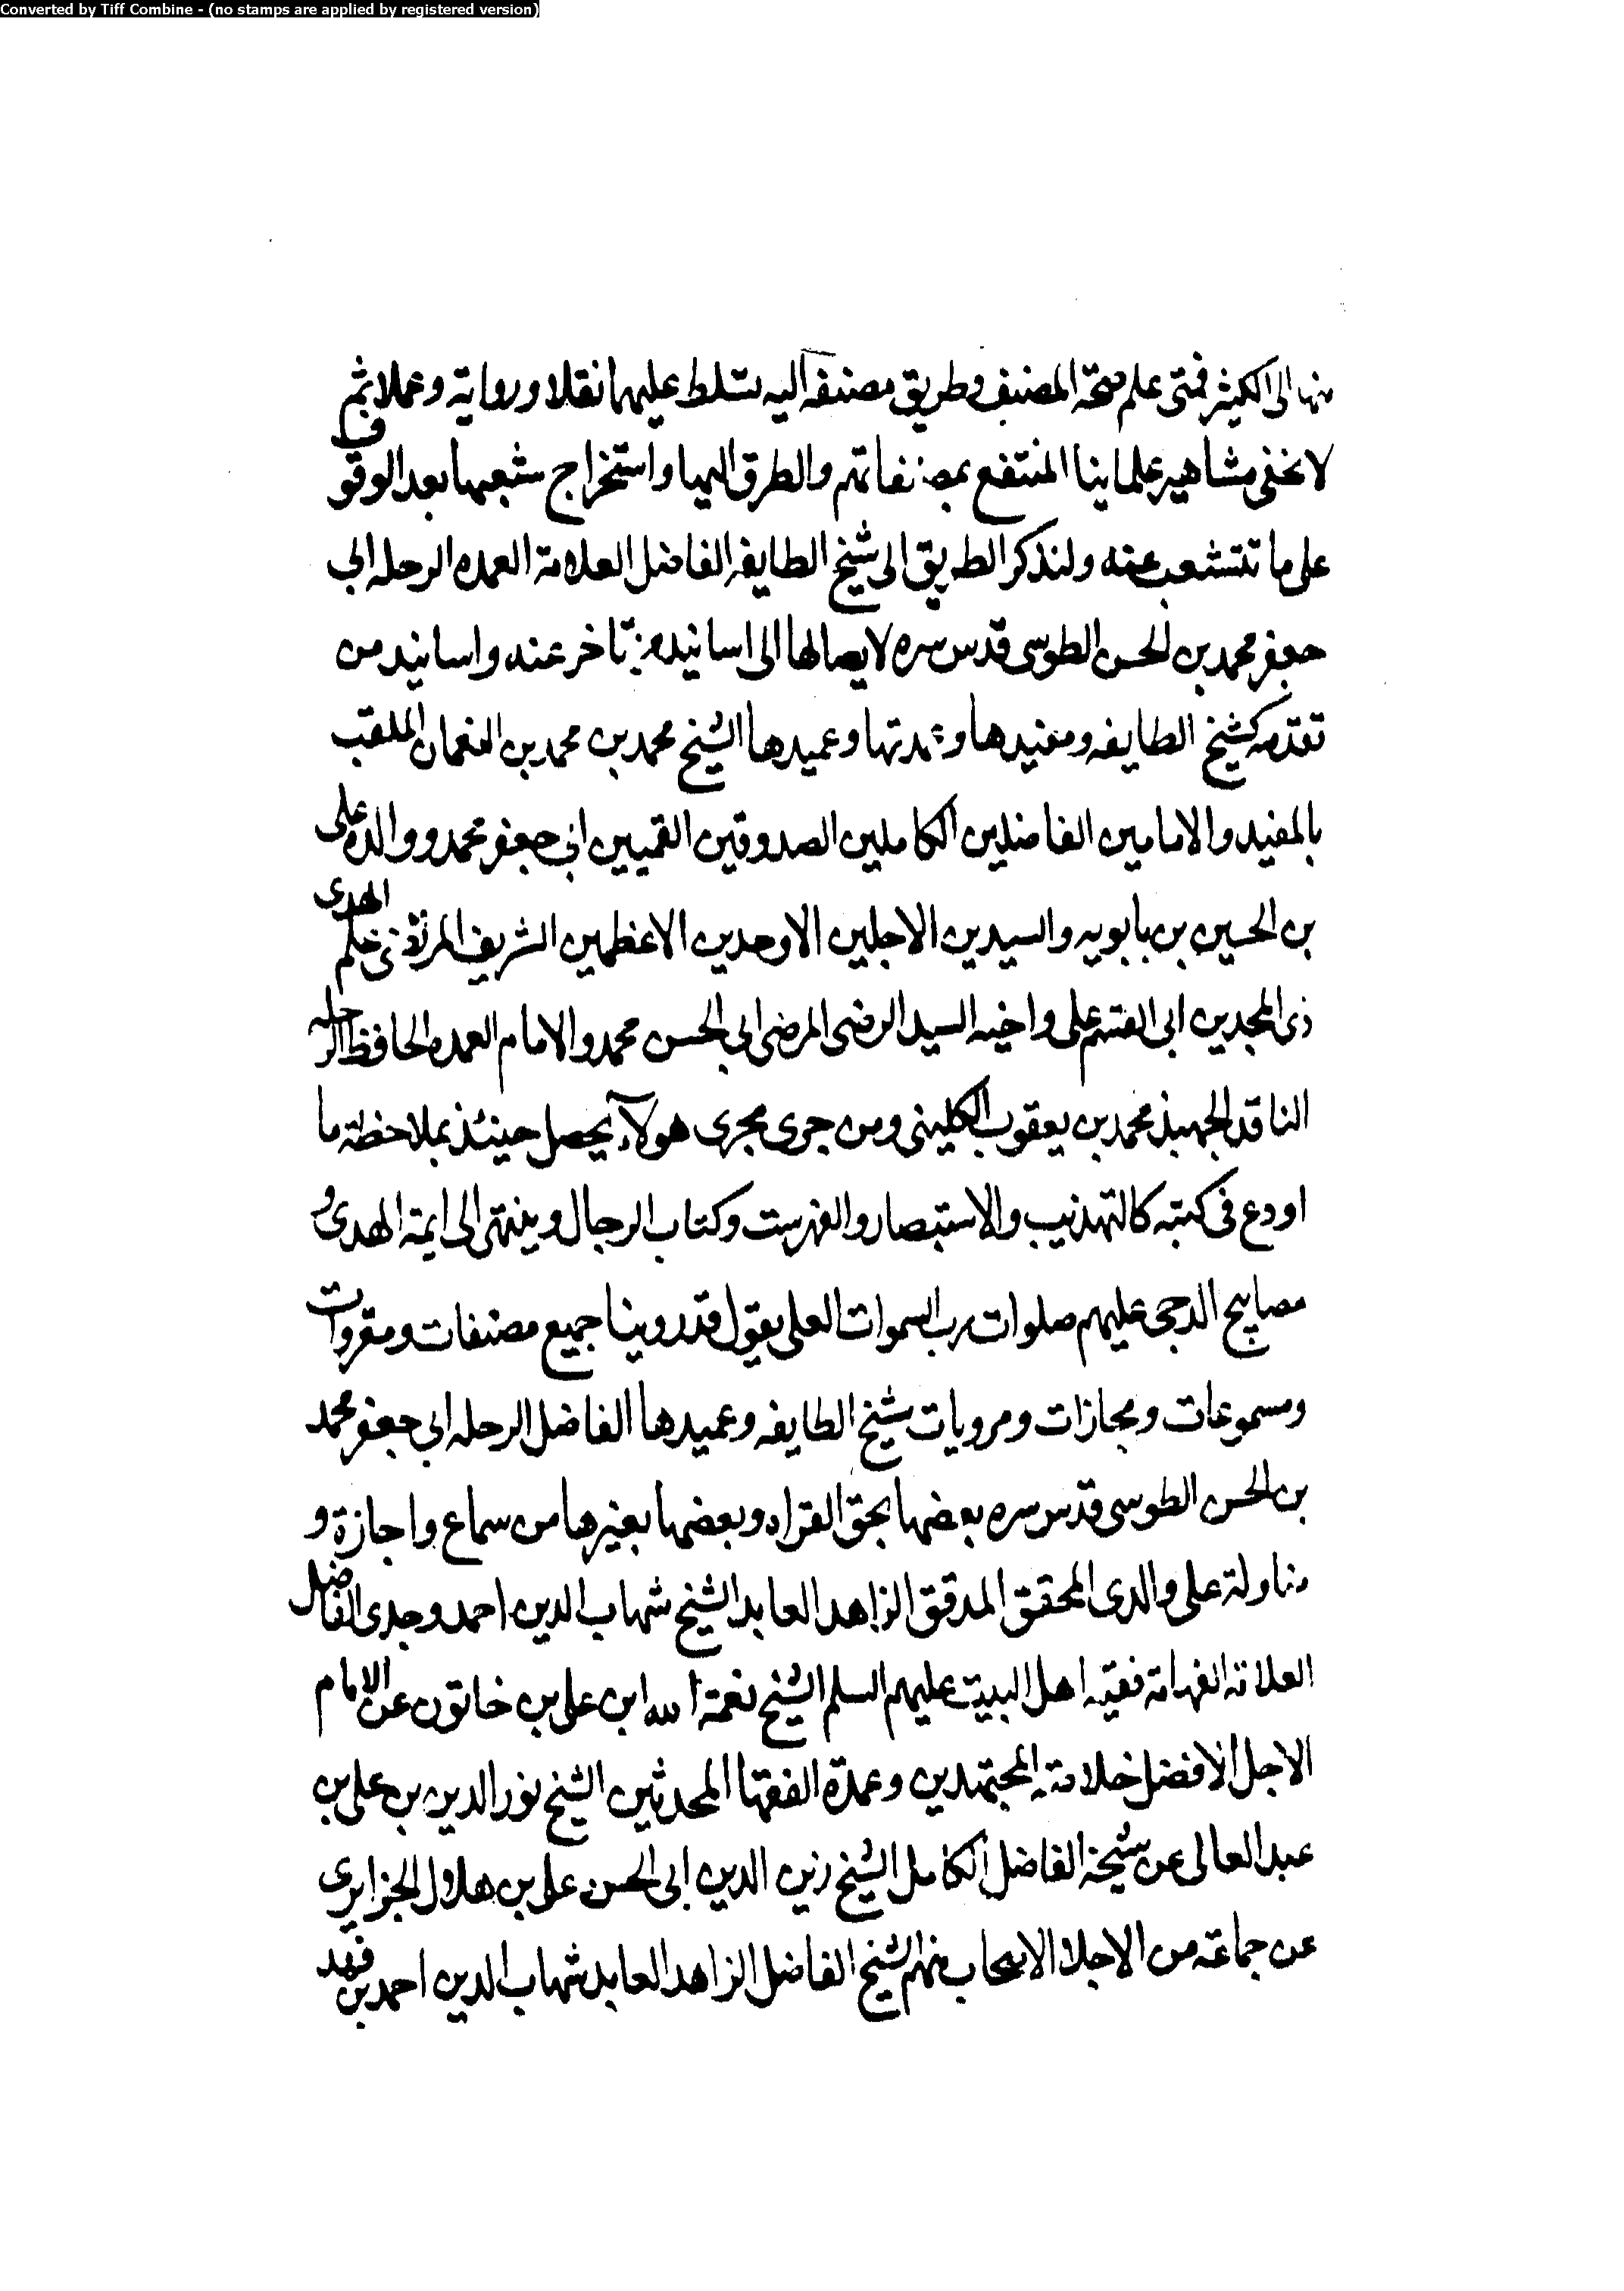 Converted by Tiff Combine - (no stamps are applied by registered version)
منها الى الكثير فمتى علم صحة المصنف وطريق مصنفه اليه تسلط عليهما نقلا ورواية وعملا ثم
لا تخفى مشاهير علماينا المنتفع بمصنفاتهم والطرق اليها واستخراج شعبها بعد الوقوف
على ما تتشعب عنه ولنذكر الطريق الى شيخ الطايفه الفاضل العلامة العمده الرحله ابى
جعفر محمد بن الحسن الطوسى قدس سره لايصالها الى اسانيد من تاخر عنه واسانيد من
تقدمه كشيخ الطايفه ومفيدها وعمدتها وعميدها الشيخ محمد بن محمد بن النعمان الملقب
بالمفيد والامامين الفاضلين الكاملين الصدوقين القميين ابى جعفر محمد ووالده على
بن الحسين بن بابويه والسيدين الاجلين الاوحدين الاعظمين الشريف المرتضى علم الهدى
ذى المجدين ابى القسم على واخيه السيد الرضى المرضى ابى الحسن محمد والامام العمده الحافظ الرحله
الناقد الجهبذ محمد بن يعقوب الكلينى ومن جرى مجرى هولآء يحصل حينئذ بملاحظة ما
اودع فى كتبه كالتهذيب والاستبصار والفهرست وكتاب الرجال وينتهى الى ايمة الهدى و
مصابيح الدجى عليهم صلوات رب السموات العلى يقول قد روينا جميع مصنفات ومقروات
ومسموعات ومجازات ومرويات شيخ الطايفه وعميدها الفاضل الرحله ابى جعفر محمد
بن الحسن الطوسى قدس سره بعضها بحق القراه وبعضها بغيرها من سماع واجازة و
مناولة على والدى المحقق المدقق الزاهد العابد الشيخ شهاب الدين احمد وجدى الفاضل
العلامة الفهامة فقيه اهل البيت عليهم السلم الشيخ نعمة الله ابن على بن خاتون عن الامام
الاجل الافضل خلاصة المجتهدين وعمدة الفقها المحدثين الشيخ نور الدين بن على بن
عبد العالى عن شيخه الفاضل الكامل الشيخ زين الدين ابى الحسن على بن هلال الجزايرى
عن جماعة من الاجلا الاصحاب منهم الشيخ الفاضل الزاهد العابد شهاب الدين احمد بن فهد